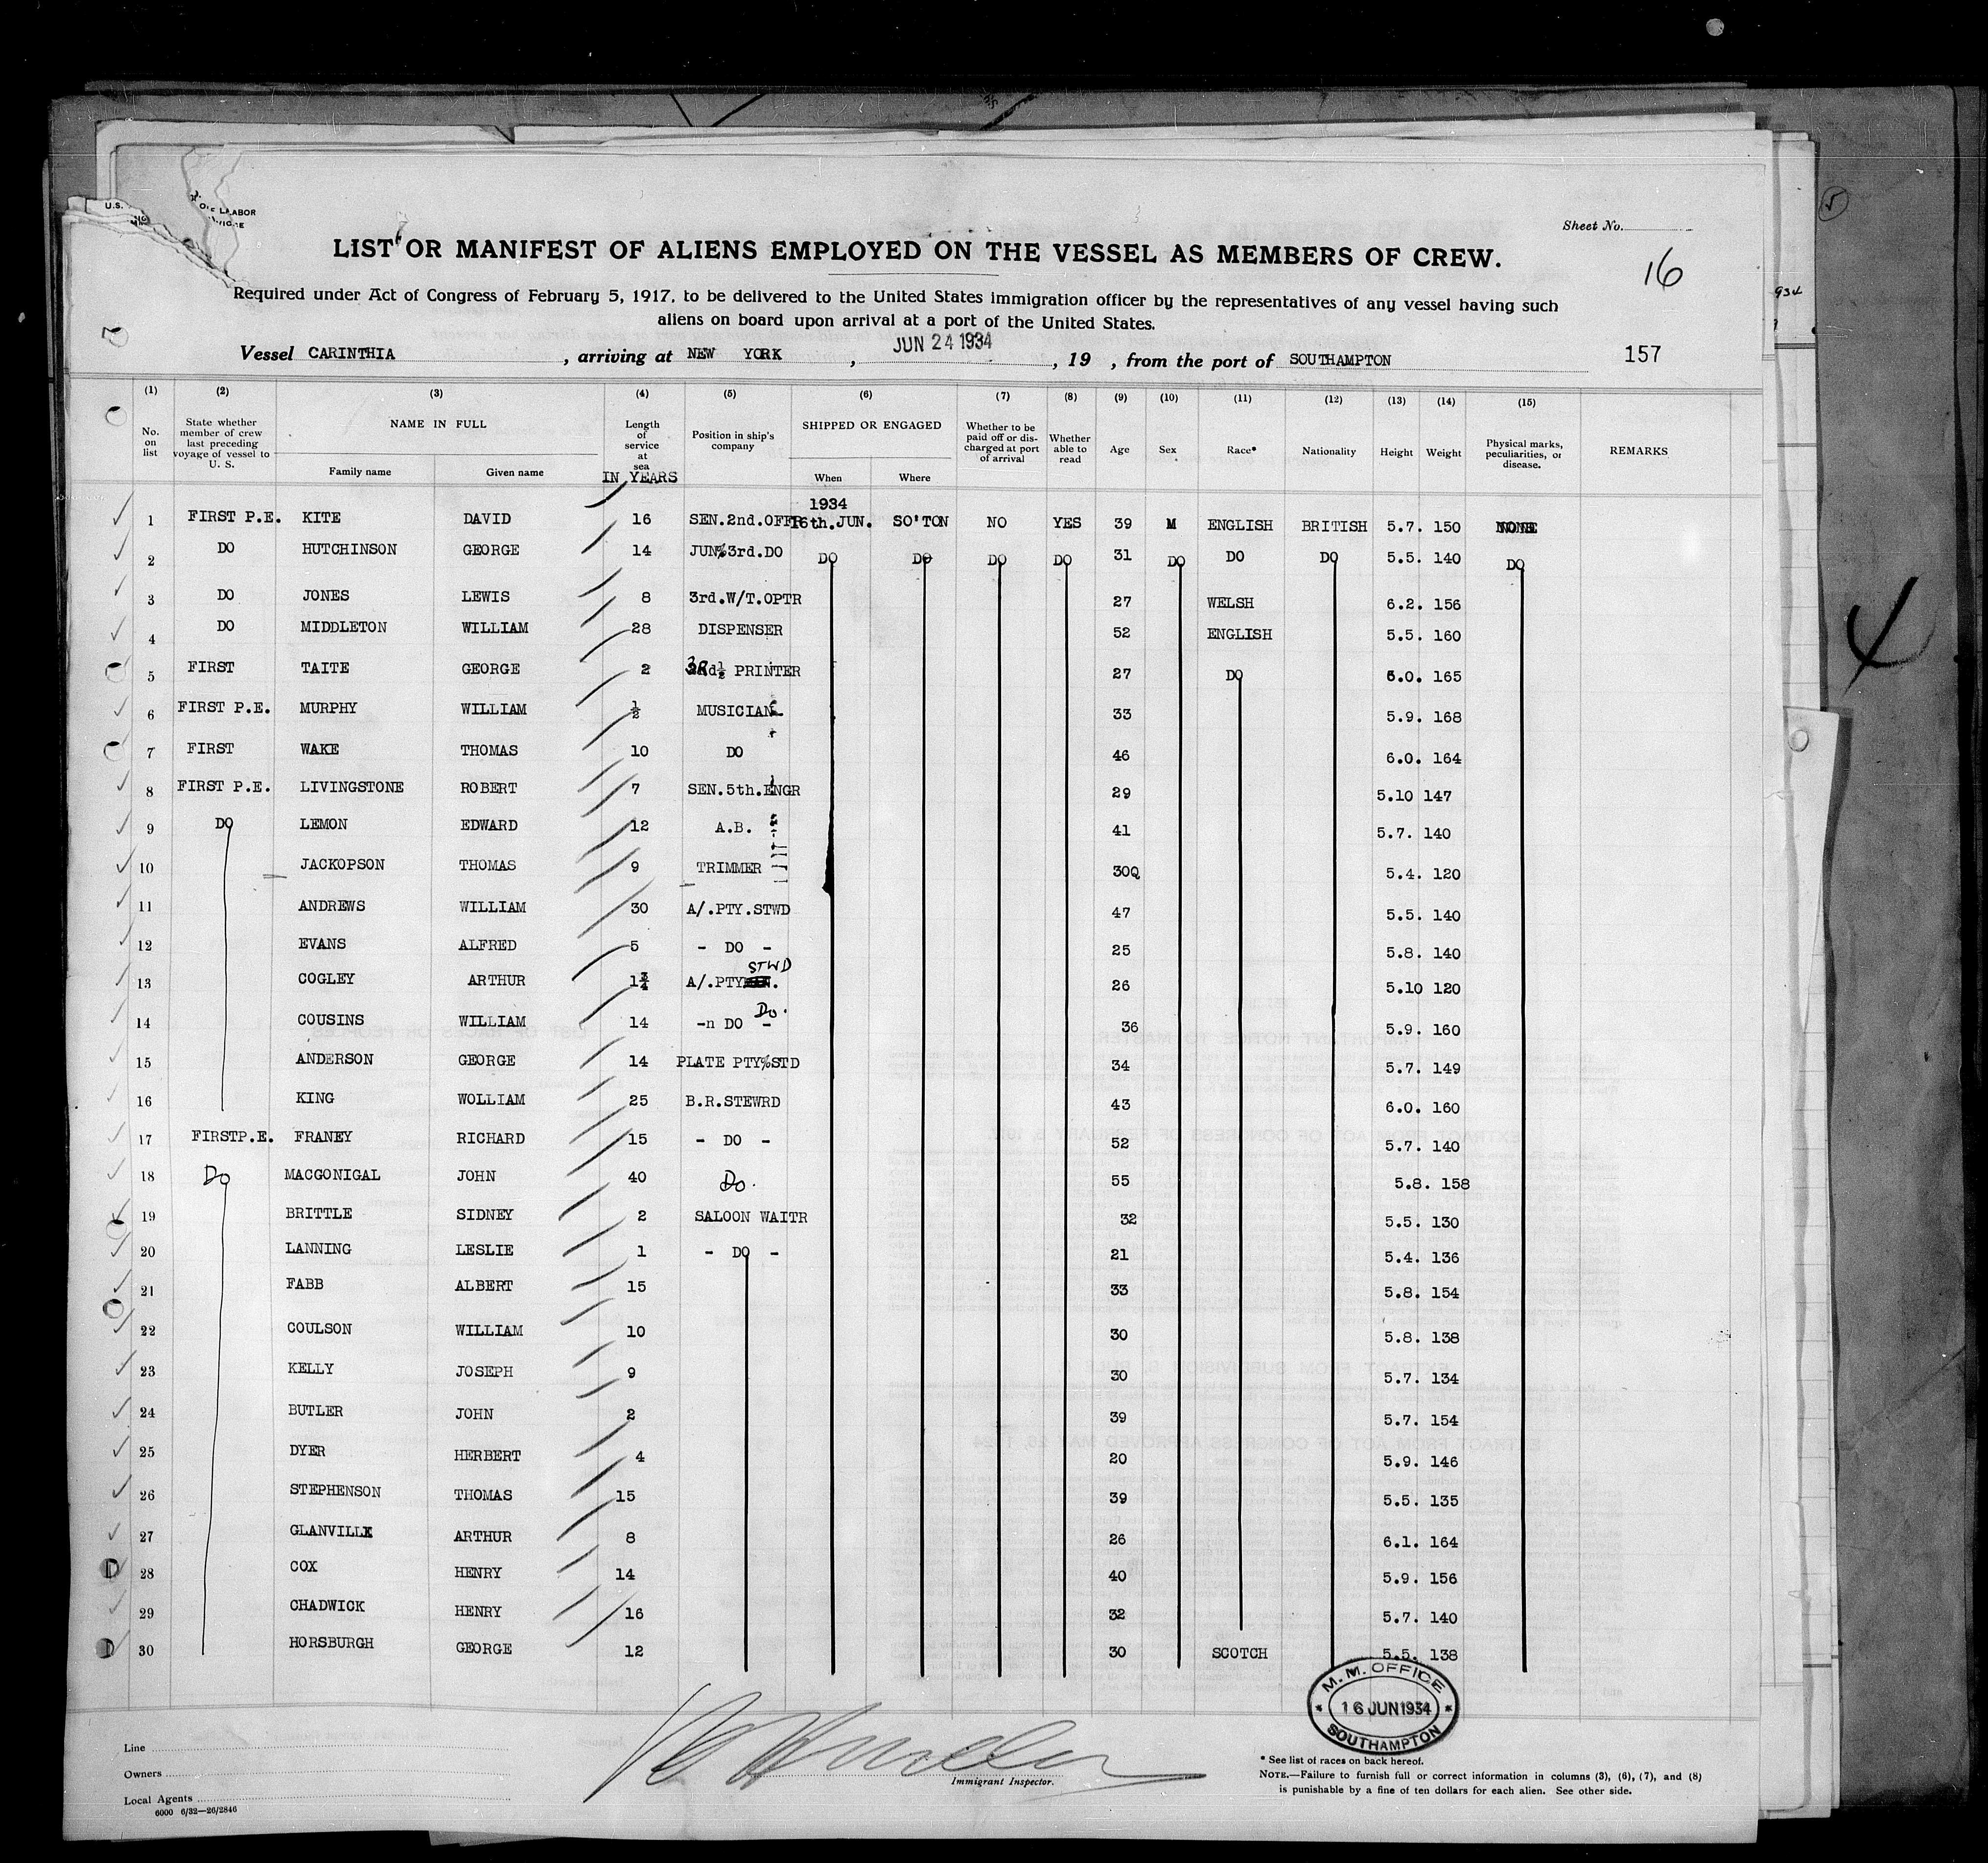 U.S.
OF LABOR
Sheet No.
LIST OR MANIFEST OF ALIENS EMPLOYED ON THE VESSEL AS MEMBERS OF CREW.
16
Required under Act of Congress of February 5, 1917, to be delivered to the United States immigration officer by the representatives of any vessel having such
aliens on board upon arrival at a port of the United States.
Vessel CARINTHIA, arriving at NEW YORK, JUN 24 1934, 19 , from the port of SOUTHAMPTON 157
(1) (2) (3) (4) (5) (6) (7) (8) (9) (10) (11) (12) (13) (14) (15)
No. on list
State whether member of crew last preceding voyage of vessel to U. S.
NAME IN FULL
Family name Given name
Length of service at sea
IN YEARS
Position in ship's company
SHIPPED OR ENGAGED
When Where
Whether to be paid off or discharged at port of arrival
Whether able to read
Age Sex Race* Nationality Height Weight
Physical marks, peculiarities, or disease.
REMARKS
1934
1 FIRST P.E. KITE DAVID 16 SEN.2nd.OFFR 16th.JUN. SO'TON NO YES 39 M ENGLISH BRITISH 5.7. 150 NONE
2 DO HUTCHINSON GEORGE 14 JUN%3rd.DO DO DO DO DO 31 DO DO DO 5.5. 140 DO
3 DO JONES LEWIS 8 3rd.W/T.OPTR 27 WELSH 6.2. 156
4 DO MIDDLETON WILLIAM 28 DISPENSER 52 ENGLISH 5.5. 160
5 FIRST TAITE GEORGE 2 PRINTER 27 DO 6.0. 165
6 FIRST P.E. MURPHY WILLIAM ½ MUSICIAN 33 5.9. 168
7 FIRST WAKE THOMAS 10 DO 46 6.0. 164
8 FIRST P.E. LIVINGSTONE ROBERT 7 SEN.5th.ENGR 29 5.10 147
9 DO LEMON EDWARD 12 A.B. 41 5.7. 140
10 JACKOPSON THOMAS 9 TRIMMER 30Q 5.4. 120
11 ANDREWS WILLIAM 30 A/.PTY.STWD 47 5.5. 140
12 EVANS ALFRED 5 - DO - 25 5.8. 140
13 COGLEY ARTHUR 1¾ A/.PTY STWD 26 5.10 120
14 COUSINS WILLIAM 14 -n DO - Do. 36 5.9. 160
15 ANDERSON GEORGE 14 PLATE PTY%STD 34 5.7. 149
16 KING WOLLIAM 25 B.R.STEWRD 43 6.0. 160
17 FIRSTP.E. FRANEY RICHARD 15 - DO - 52 5.7. 140
18 Do MACGONIGAL JOHN 40 Do. 55 5.8. 158
19 BRITTLE SIDNEY 2 SALOON WAITR 32 5.5. 130
20 LANNING LESLIE 1 - DO - 21 5.4. 136
21 FABB ALBERT 15 33 5.8. 154
22 COULSON WILLIAM 10 30 5.8. 138
23 KELLY JOSEPH 9 30 5.7. 134
24 BUTLER JOHN 2 39 5.7. 154
25 DYER HERBERT 4 20 5.9. 146
26 STEPHENSON THOMAS 15 39 5.5. 135
27 GLANVILLX ARTHUR 8 26 6.1. 164
28 COX HENRY 14 40 5.9. 156
29 CHADWICK HENRY 16 32 5.7. 140
30 HORSBURGH GEORGE 12 30 SCOTCH 5.5. 138
M.M. OFFICE
16 JUN 1934
SOUTHAMPTON
Line
Owners
Local Agents
6000 6/32—26/2846
Immigrant Inspector.
* See list of races on back hereof.
NOTE.—Failure to furnish full or correct information in columns (3), (6), (7), and (8)
is punishable by a fine of ten dollars for each alien. See other side.